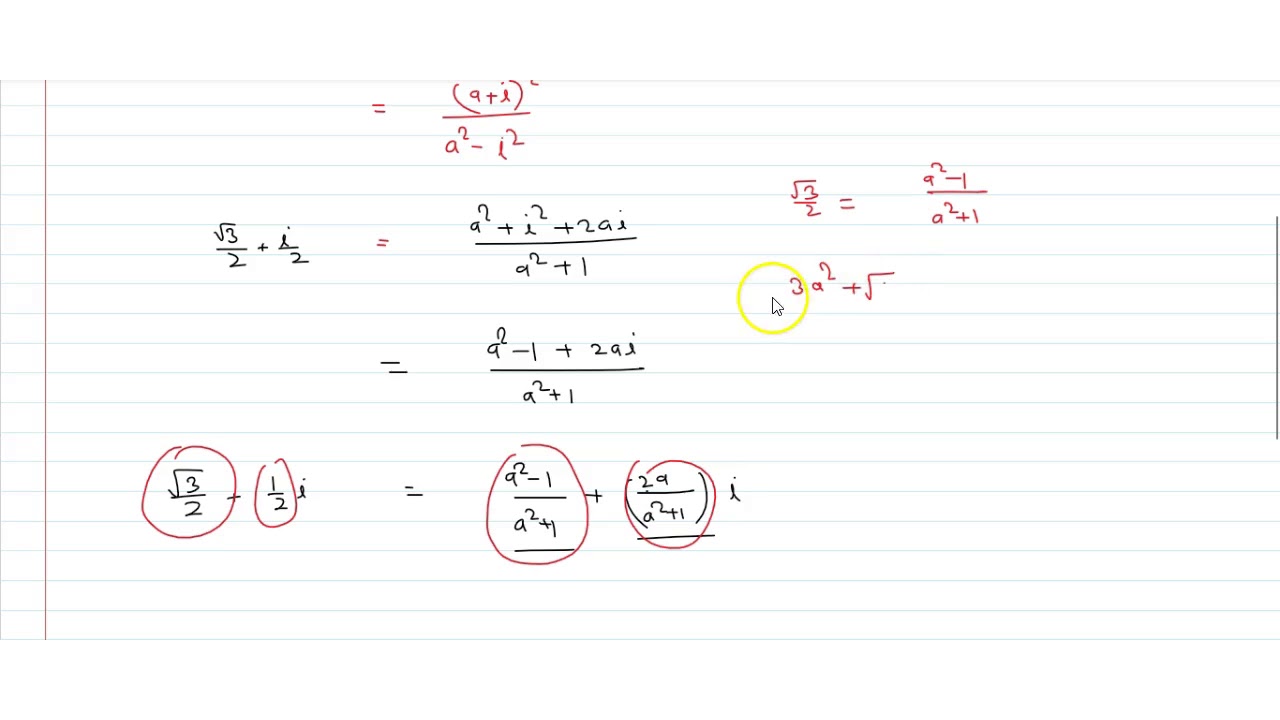 = (a+i)² / a² - i²
√3/2 = a²-1 / a²+1
√3/2 + i/2 = a² + i² + 2ai / a² + 1
3a² + √
= a² - 1 + 2ai / a² + 1
√3/2 + 1/2 i = a² - 1 / a² + 1 + (2a / a² + 1) i